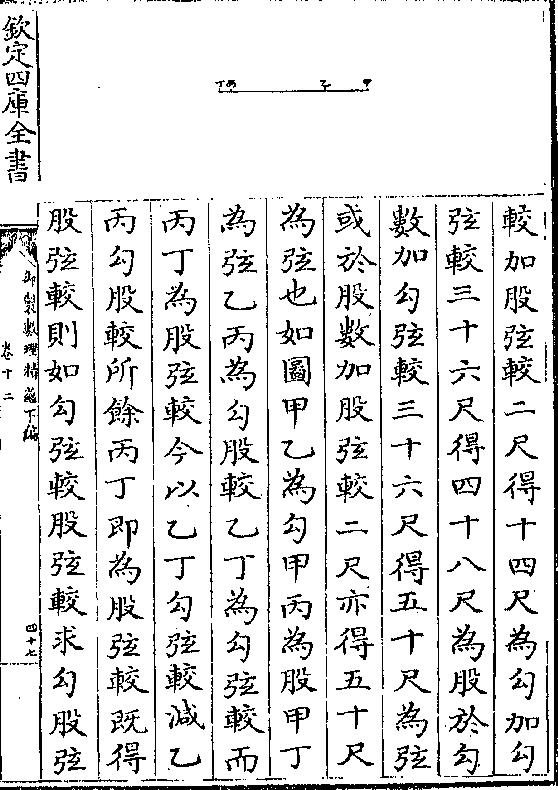 較加股弦較二尺得十四尺為勾加勾
弦較三十六尺得四十八尺為股於勾
數加勾弦較三十六尺得五十尺為弦
或於股數加股弦較二尺亦得五十尺
為弦也如圖甲乙為勾甲丙為股甲丁
為弦乙丙為勾股較乙丁為勾弦較而
丙丁為股弦較今以乙丁勾弦較減乙
丙勾股較所餘丙丁即為股弦較既得
股弦較則如勾弦較股弦較求勾股弦
欽定四庫全書
御製數理精藴下編
卷十二
四十七
甲
乙
丙丁